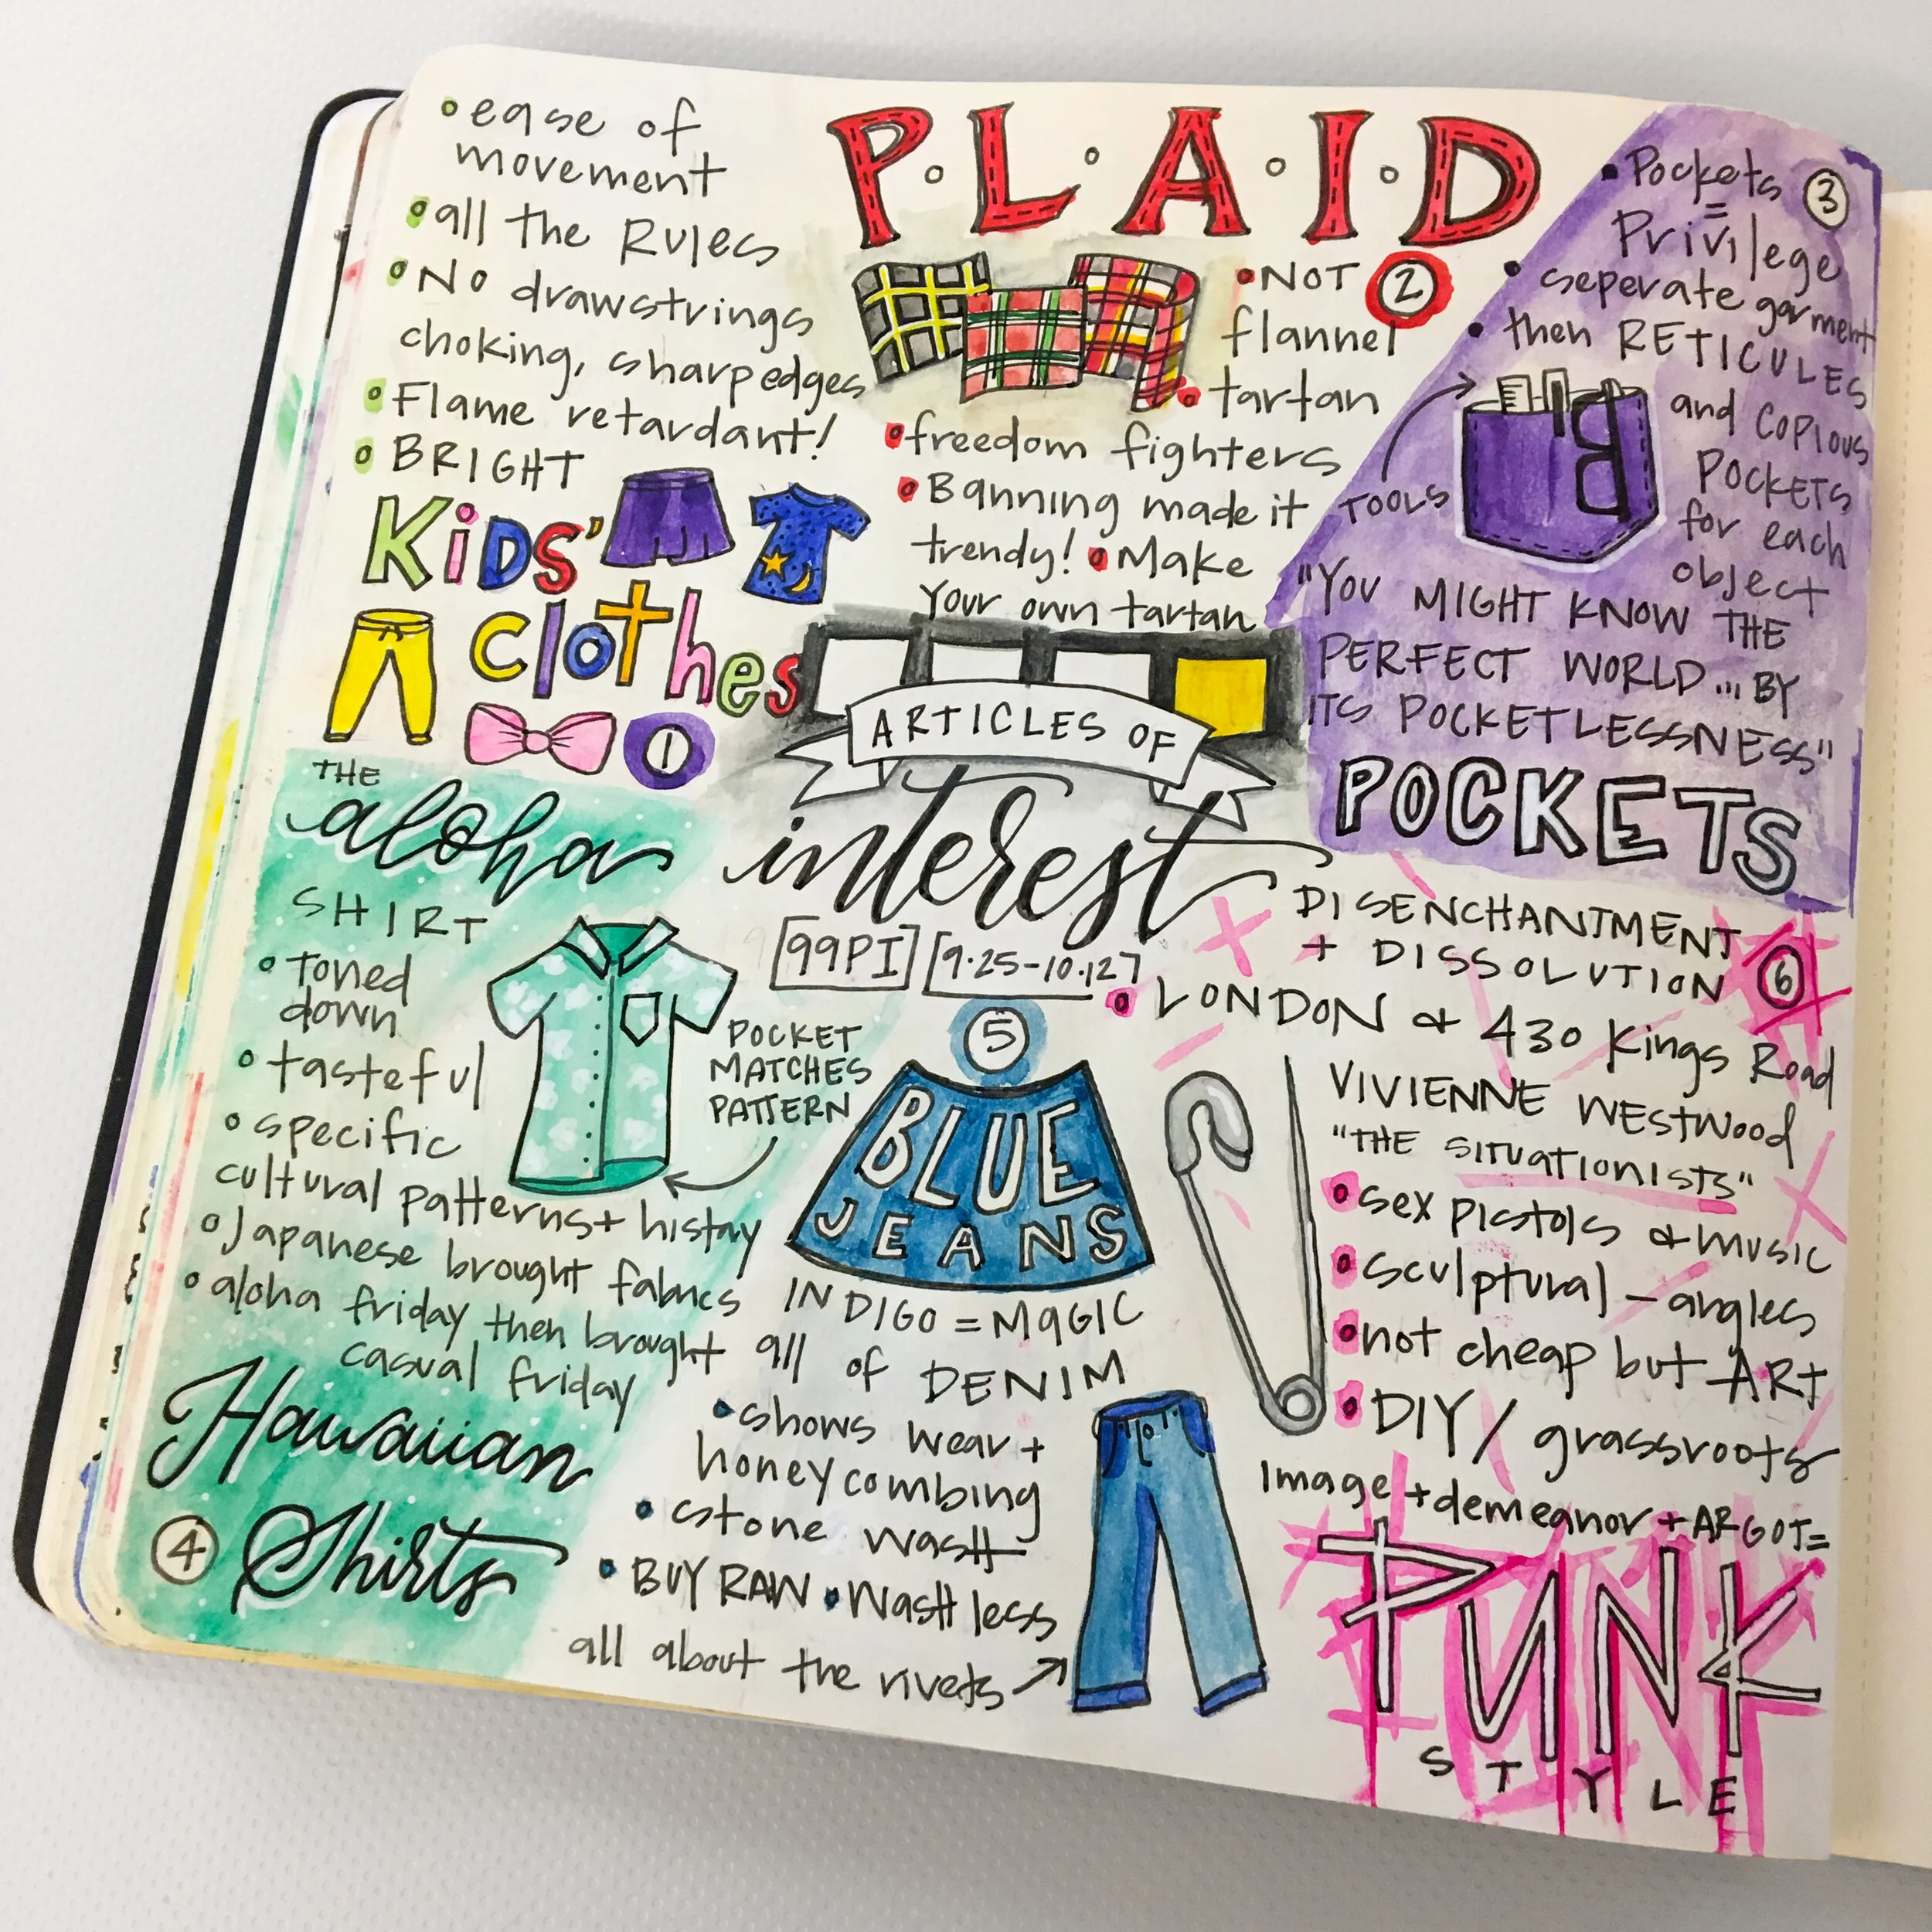 • ease of
movement
• all the Rules
• No drawstrings
choking, sharp edges
• Flame retardant!
• BRIGHT
Kids'
clothes
1
P·L·A·I·D
2
• NOT
flannel
• tartan
• freedom fighters
• Banning made it
trendy! • Make
your own tartan
• Pockets
=
Privilege
3
• seperate garment
• then RETICULES
and COPIOUS
POCKETS
for each
object
TOOLS
"YOU MIGHT KNOW THE
PERFECT WORLD... BY
ITS POCKETLESSNESS"
POCKETS
ARTICLES OF
interest
[99PI] [9.25-10.12]
THE
aloha
SHIRT
• toned
down
• tasteful
• specific
cultural patterns + histoy
• Japanese brought fabrics
• aloha friday then brought
casual friday
POCKET
MATCHES
PATTERN
Hawaiian
4 Shirts
5
BLUE
JEANS
INDIGO = MAGIC
all of DENIM
• shows wear +
honeycombing
• stone wash
• BUY RAW • Wash less
all about the rivets
DISENCHANTMENT
+ DISSOLUTION
6
• LONDON & 430 Kings Road
VIVIENNE Westwood
"THE SITUATIONISTS"
• sex pistols & music
• sculptural - angles
• not cheap but ART
• DIY / grassroots
Image + demeanor + ARGOT =
PUNK
STYLE